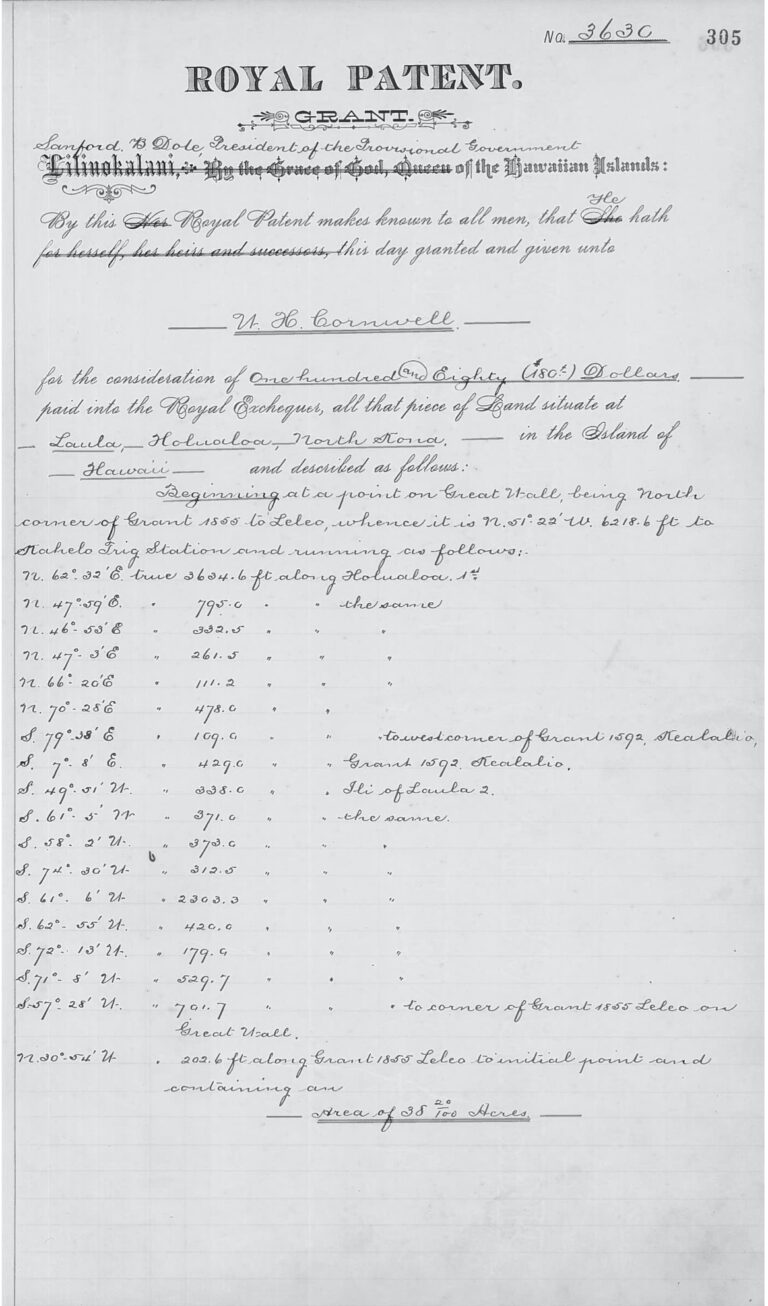 No. 3630 305
ROYAL PATENT.
GRANT.
Sanford. B Dole, President of the Provisional Government
Liliuokalani, By the Grace of God, Queen of the Hawaiian Islands:
He
By this Her Royal Patent makes known to all men, that She hath
for herself, her heirs and successors, this day granted and given unto
W. H. Cornwell.
for the consideration of One hundred and Eighty ($180.) Dollars
paid into the Royal Exchequer, all that piece of Land situate at
Laula, Holualoa, North Kona, in the Island of
Hawaii and described as follows:
Beginning at a point on Great Wall, being North
corner of Grant 1855 to Leleo, whence it is N. 51° 22' W. 6218.6 ft to
Kahelo Trig Station and running as follows:-
N. 62° 32' E. true 3634.6 ft along Holualoa. 1st
N. 47° 59' E. " 795.0 " " the same
N. 46° 53' E " 332.5 " " "
N. 47° 3' E " 261.5 " " "
N. 66° 20' E " 111.2 " " "
N. 70° 28' E " 478.0 " "
S. 79° 38' E " 109.0 " " " to west corner of Grant 1592, Kealalio,
S. 7° 8' E. " 429.0 " " Grant 1592. Kealalio.
S. 49° 51' W. " 338.0 " " Ili of Laula 2.
S. 61° 5' W " 371.0 " " the same.
S. 58° 2' W. " 373.0 " " "
S. 74° 30' W " 312.5 " " "
S. 61° 6' W " 2303.3 " " "
S. 62° 55' W. " 420.0 " " "
S. 72° 13' W. " 179.0 " " "
S. 71° 8' W " 529.7 " " "
S. 57° 28' W. " 701.7 " " " to corner of Grant 1855 Leleo on
Great Wall.
N. 30° 54' W " 202.6 ft along Grant 1855 Leleo to initial point and
containing an
Area of 38 20/100 Acres.